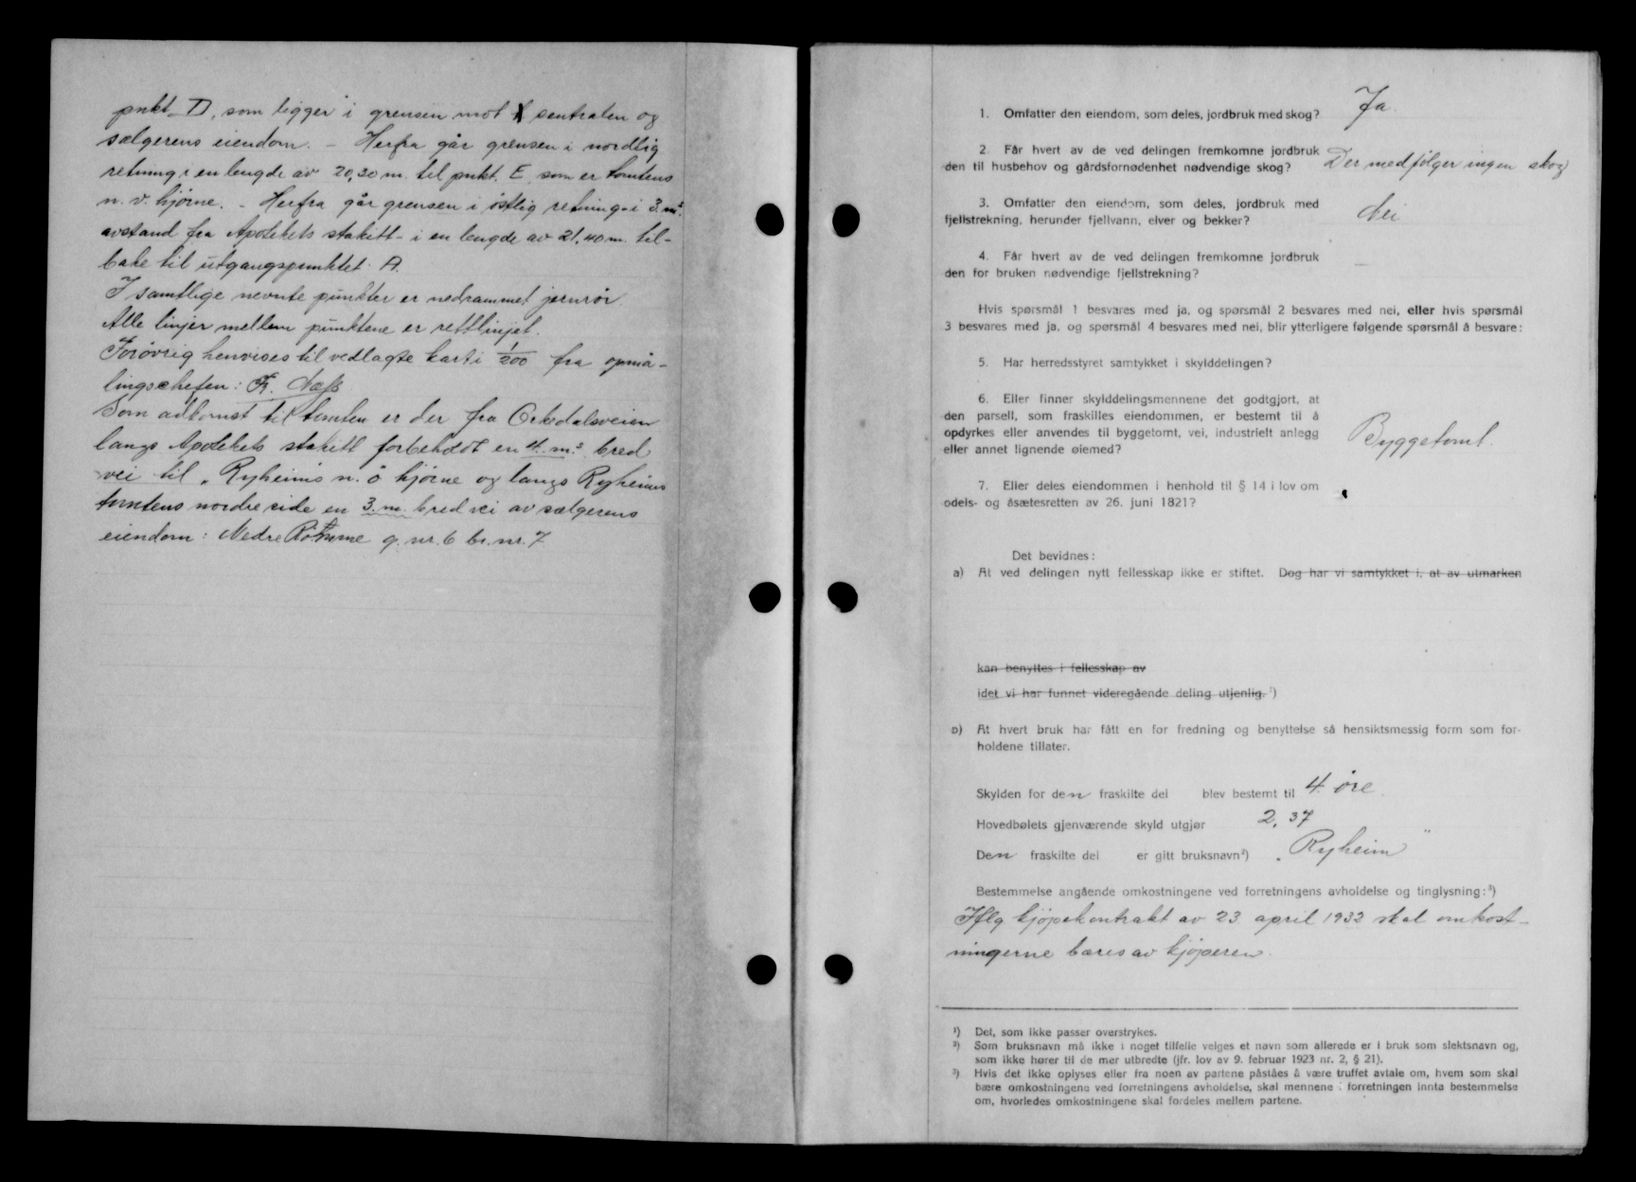 pnkt D, som ligger i grensen mot sentralen og
sælgerens eiendom. - Herfra går grensen i nordlig
retning i en lengde av 20,30 m. til pnkt. E. som er tomtens
n. v. hjørne. - Herfra går grensen i østlig retning - i 3. m's
avstand fra Apotekets stakitt - i en lengde av 21,40 m. til-
bake til utgangspunktet A.
I samtlige nevnte punkter er nedrammet jernrör.
Alle linjer mellem punktene er rettlinjet.
Forøvrig henvises til vedlagte kart i 1/200 fra opmå-
lingschefen: Fr. Næss
Som adkomst til tomten er der fra Orkdalsveien
langs Apotekets stakitt forbeholdt en 4. m's bred
vei til "Ryheims n. ö hjörne og langs Ryheims
tomtens nordre side en 3. m. bred vei av sælgerens
eiendom: Nedre Römme g. nr. 6 br. nr. 7
1. Omfatter den eiendom, som deles, jordbruk med skog? Ja.
2. Får hvert av de ved delingen fremkomne jordbruk
den til husbehov og gårdsfornødenhet nødvendige skog? Der medfölger ingen skog
3. Omfatter den eiendom, som deles, jordbruk med
fjellstrekning, herunder fjellvann, elver og bekker? Nei
4. Får hvert av de ved delingen fremkomne jordbruk
den for bruken nødvendige fjellstrekning? —
Hvis spørsmål 1 besvares med ja, og spørsmål 2 besvares med nei, eller hvis spørsmål
3 besvares med ja, og spørsmål 4 besvares med nei, blir ytterligere følgende spørsmål å besvare:
5. Har herredsstyret samtykket i skylddelingen?
6. Eller finner skylddelingsmennene det godtgjort, at
den parsell, som fraskilles eiendommen, er bestemt til å
opdyrkes eller anvendes til byggetomt, vei, industrielt anlegg
eller annet lignende øiemed? Byggetomt.
7. Eller deles eiendommen i henhold til § 14 i lov om
odels- og åsætesretten av 26. juni 1821?
Det bevidnes:
a) At ved delingen nytt fellesskap ikke er stiftet. Dog har vi samtykket i, at av utmarken
kan benyttes i fellesskap av
idet vi har funnet videregående deling utjenlig. ¹)
b) At hvert bruk har fått en for fredning og benyttelse så hensiktsmessig form som for-
holdene tillater.
Skylden for den fraskilte del blev bestemt til 4 öre.
Hovedbølets gjenværende skyld utgjør 2,37
Den fraskilte del er gitt bruksnavn²) "Ryheim"
Bestemmelse angående omkostningene ved forretningens avholdelse og tinglysning: ³)
Iflg kjöpekontrakt av 23 april 1932 skal omkost-
ningerne bæres av kjöperen.
¹) Det, som ikke passer overstrykes.
²) Som bruksnavn må ikke i noget tilfelle velges et navn som allerede er i bruk som slektsnavn og,
som ikke hører til de mer utbredte (jfr. lov av 9. februar 1923 nr. 2, § 21).
³) Hvis det ikke oplyses eller fra noen av partene påståes å være truffet avtale om, hvem som skal
bære omkostningene ved forretningens avholdelse, skal mennene i forretningen innta bestemmelse
om, hvorledes omkostningene skal fordeles mellem partene.